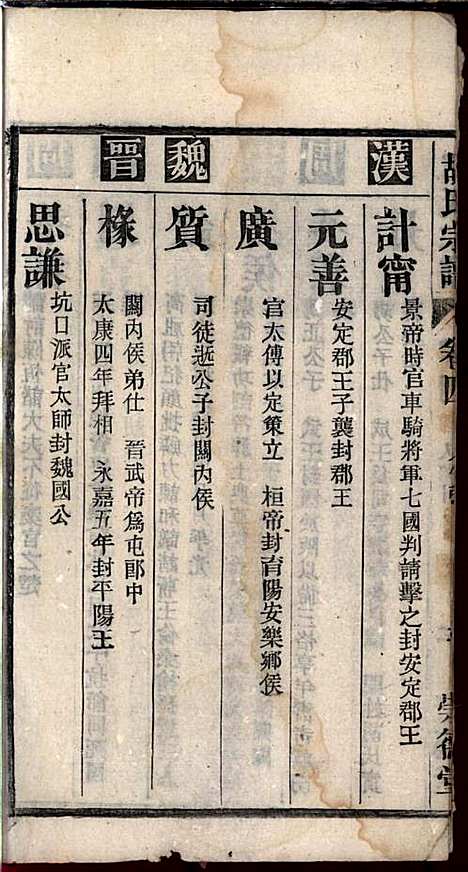 胡氏宗譜 卷四
崇德堂
漢
計甯
景帝時官車騎將軍七國判請擊之封安定郡王
元善
安定郡王子襲封郡王
廣
官太傅以定策立 桓帝封育陽安樂鄉侯
魏
質
司徒遜公子封關內侯
晉
椽
關內侯弟仕 晉武帝爲屯郎中
太康四年拜相 永嘉五年封平陽王
思謙
坑口派官太師封魏國公